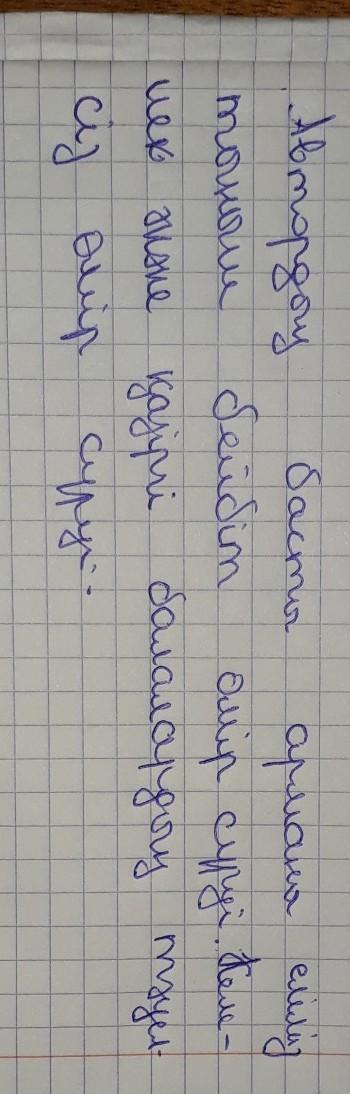 Автордың басты арманы еліміз
тыныш бейбіт өмір сүруі. Келе-
шек және қазіргі балалардың тәуел-
сіз өмір сүруі.